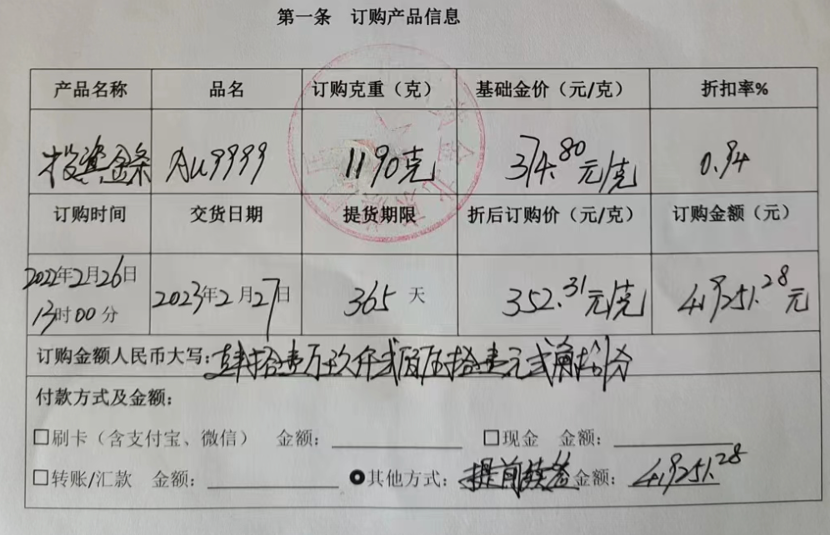 第一条 订购产品信息
产品名称 品名 订购克重（克） 基础金价（元/克） 折扣率%
投资金条 AU9999 1190克 374.80元/克 0.94
订购时间 交货日期 提货期限 折后订购价（元/克） 订购金额（元）
2022年2月26日 13时00分 2023年2月27日 365天 352.31元/克 419251.28元
订购金额人民币大写：肆拾壹万玖仟贰佰伍拾壹元贰角捌分
付款方式及金额：
□刷卡（含支付宝、微信） 金额： □现金 金额：
□转账/汇款 金额： 其他方式：提前续签 金额：419251.28